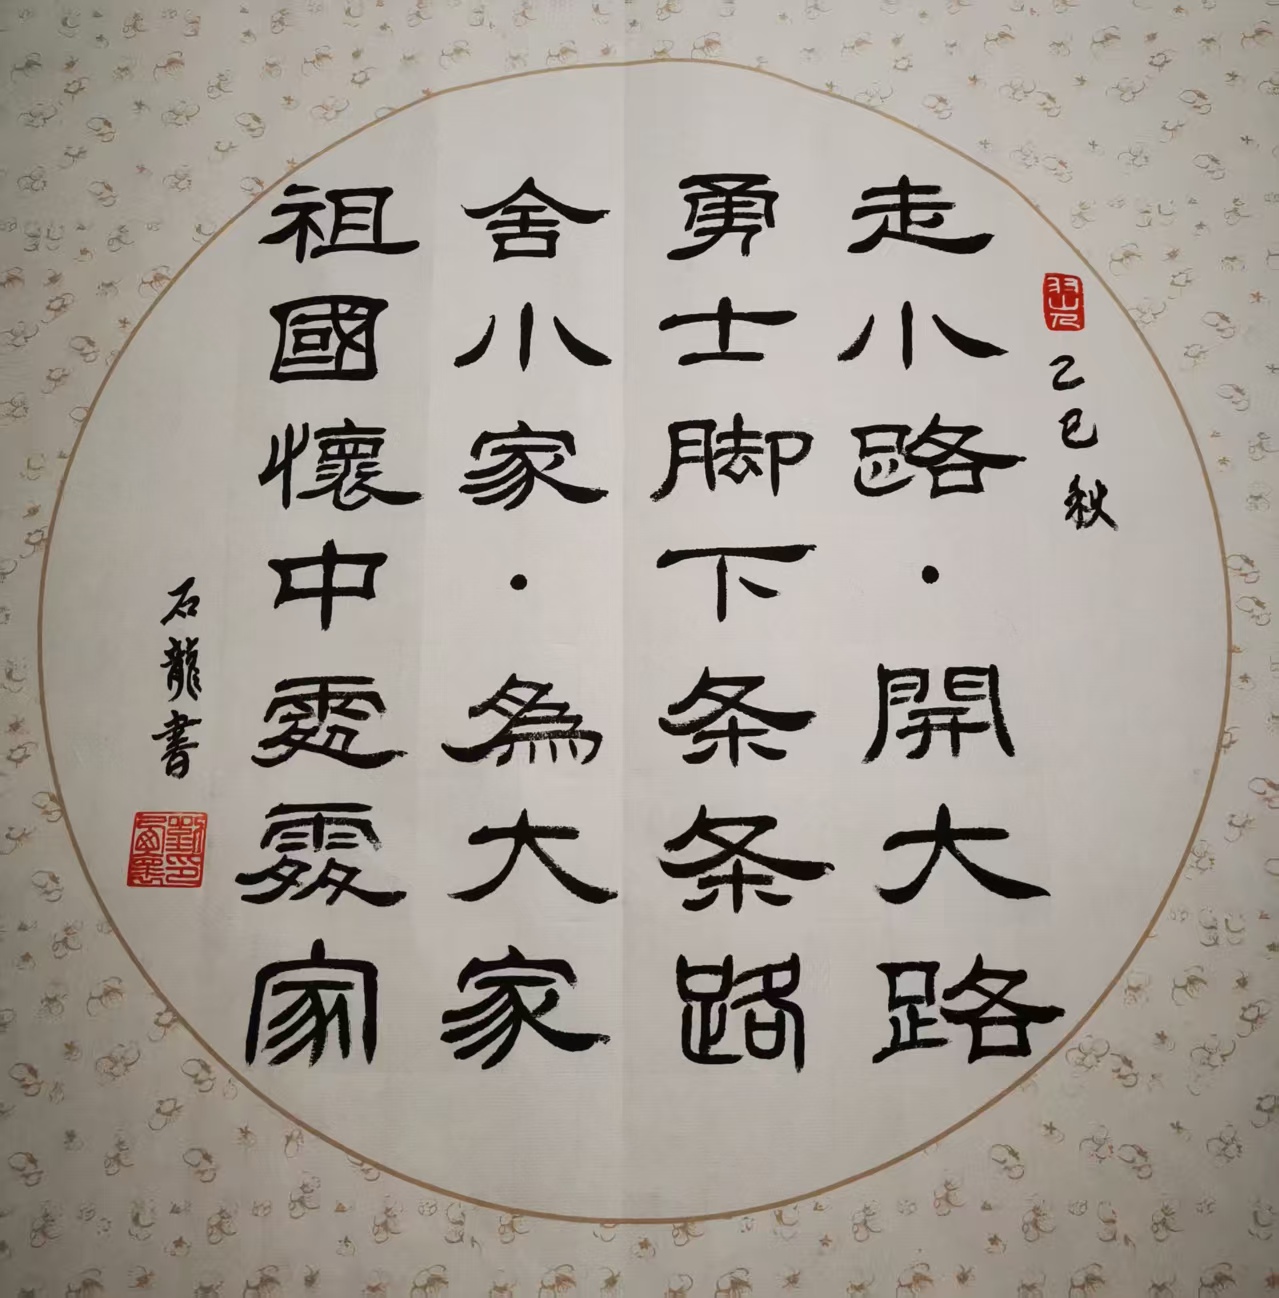 乙巳秋
走小路·開大路
勇士脚下条条路
舍小家·為大家
祖國懷中處處家
石龍書